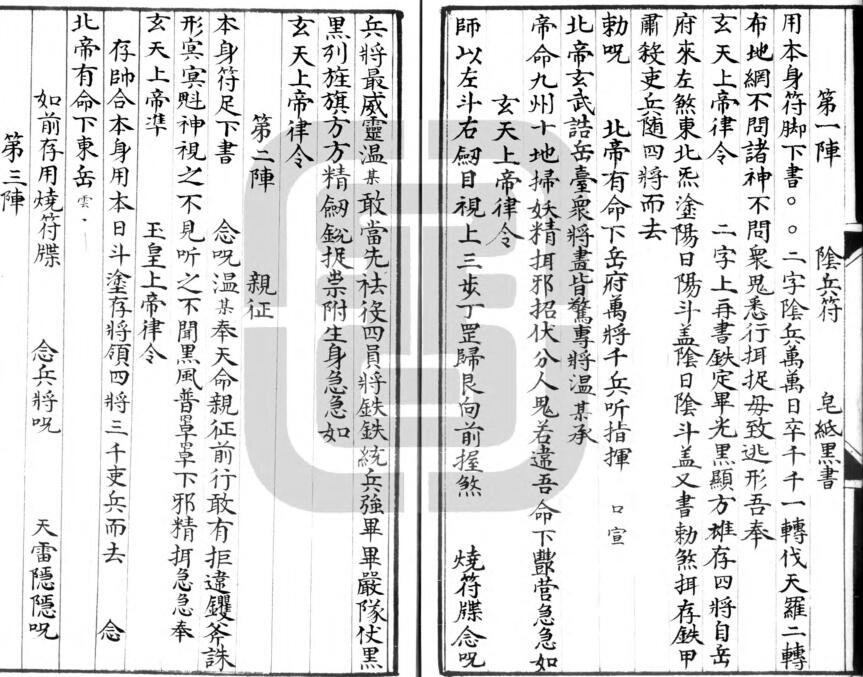 第一陣 陰兵符 皂紙黑書
用本身符脚下書。。二字陰兵萬萬日卒千千一轉伐天羅二轉
布地網不問諸神不問衆鬼悉行捉毋致逃形吾奉
玄天上帝律令 二字上再書鉄定畢光黑顯方雄存四將自岳
府來左煞東北炁塗陽日陽斗盖陰日陰斗盖又書勅煞存鉄甲
肅殺吏兵随四將而去
勅咒 北帝有命下岳府萬將千兵听指揮 口宣
北帝玄武誥岳臺衆將盡皆驚專將溫某承
帝命九州十地掃妖精邪招伏分人鬼若違吾命下酆营急急如
玄天上帝律令
師以左斗右劒目視上三步丁罡歸艮向前握煞 燒符牒念咒
兵將最威靈溫某敢當先祛役四員將鉄鉄統兵強畢畢嚴隊仗黑
黑列旌旗方方精劒鈗捉祟附生身急急如
玄天上帝律令
第二陣 親征
本身符足下書 念咒溫某奉天命親征前行敢有拒違钁斧誅
形冥冥魁神視之不見听之不聞黑風普罩罩下邪精急急奉
玄天上帝準 玉皇上帝律令
存帥合本身用本日斗塗存將領四將三千吏兵而去 念
北帝有命下東岳雲
如前存用燒符牒 念兵將咒 天雷隱隱咒
第三陣